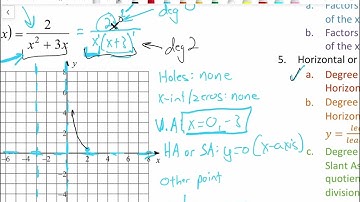 deg 0
x) = 2 / (x² + 3x) = 2x⁰ / (x¹(x+3)¹)
deg 2
Holes: none
x-int/zeros: none
V.A: x=0, -3
HA or SA: y=0 (x-axis)
other point
y
x
-6 -4 -2 2 4 6
a. Factors
of the
b. Factors
of the x
5. Horizontal or
a. Degree
Horizon
b. Degree
Horizon
y = lea
c. Degree
Slant As
quotien
division